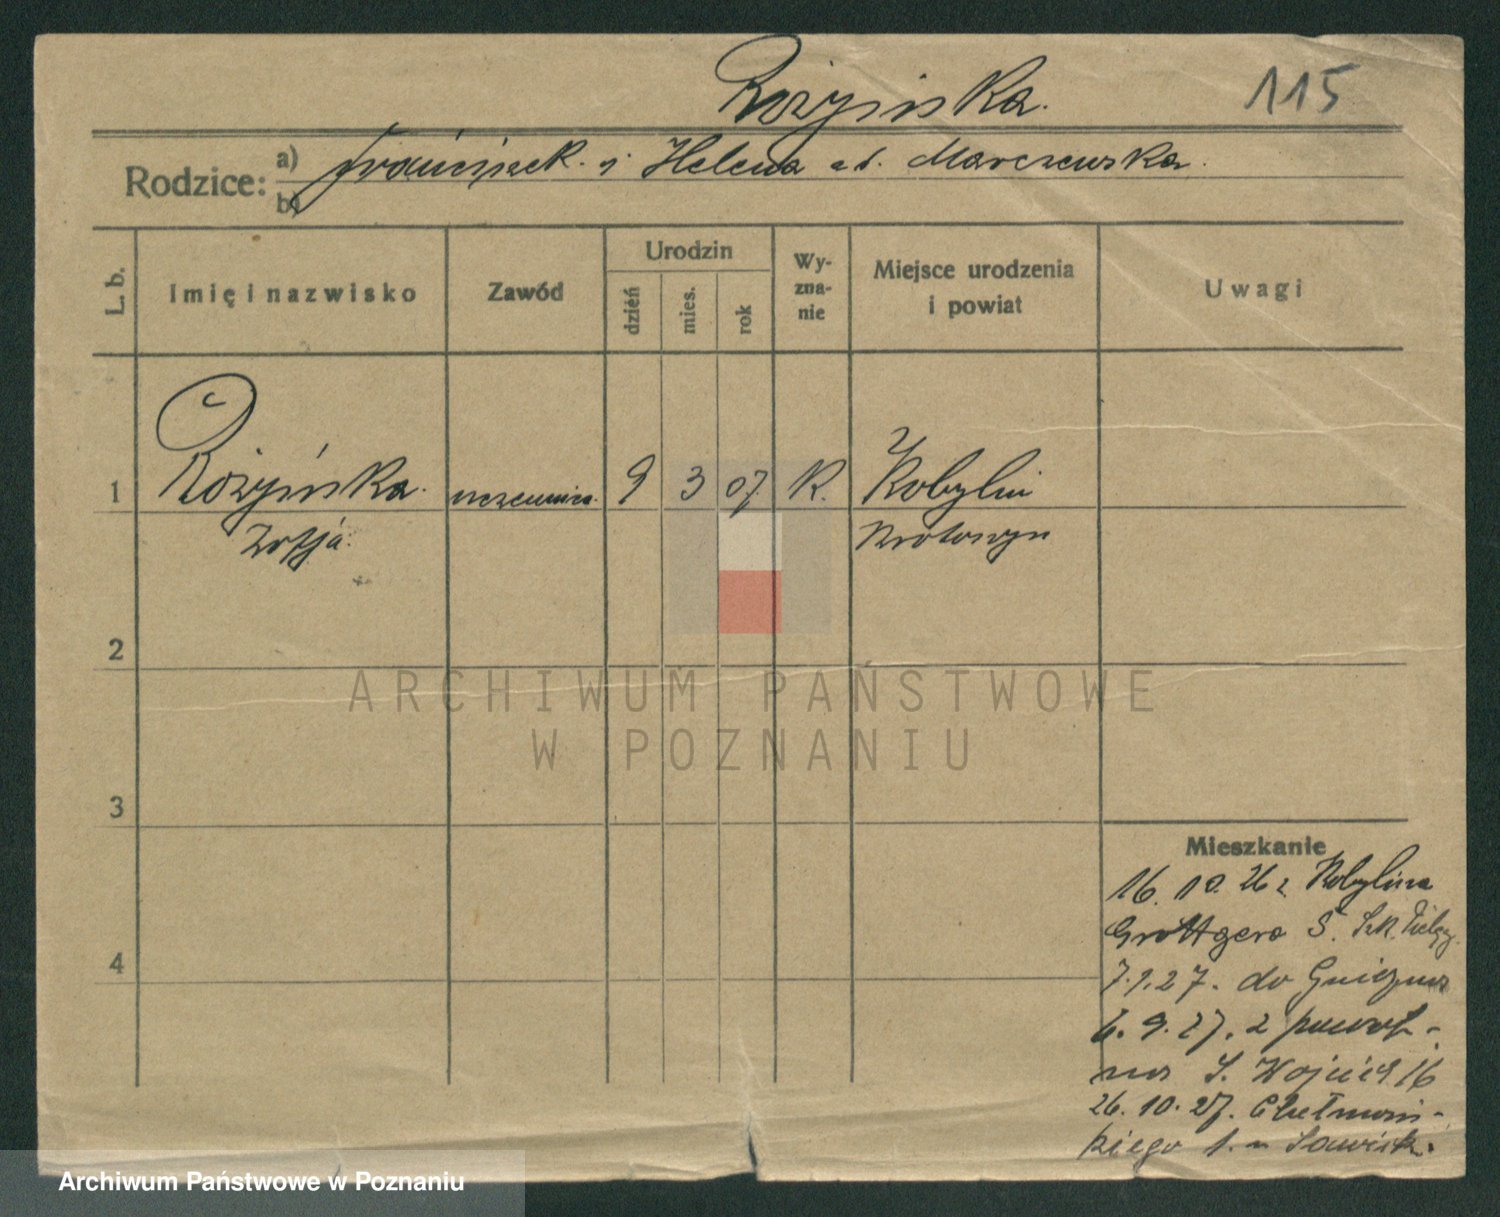 Rożyńska.
115
Rodzice:
a) Franciszek. i Helena z d. Marczewska.
b)
L. b.
Imię i nazwisko
Zawód
Urodzin
dzień
mies.
rok
Wy-
zna-
nie
Miejsce urodzenia
i powiat
Uwagi
1
Rożyńska.
Zofja.
uczennica.
9
3
07.
K.
Kobylin
Krotoszyn
2
ARCHIWUM PAŃSTWOWE
W POZNANIU
3
4
Mieszkanie
16. 10. 26 z Kobylina
Grottgera 5. Szk.
7.1.27. do Gniezna
6. 9. 27. z powrot-
S. Wojciech 16
26. 10. 27. Chełmoń-
skiego 1.
Archiwum Państwowe w Poznaniu